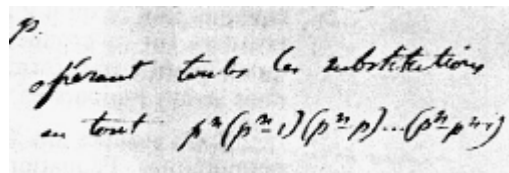 p.
opérant toutes les substitutions
en tout pⁿ(pⁿ-1)(pⁿ-p)...(pⁿ-pⁿ⁻¹)